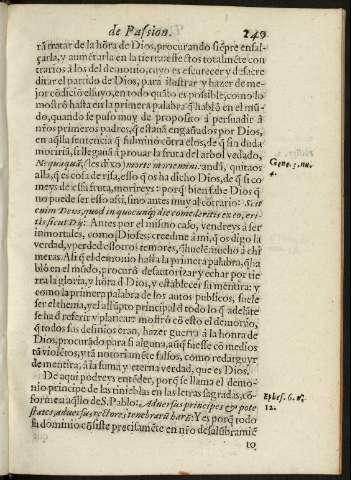 de Passion.
249
rã tratar de la hõra de Dios, procurando siẽpre ensal-
çarla, y aumẽtarla en la tierra: estẽ ctos totalmẽte con
trarios à los del demonio, cuyo es escurecer y desacre
ditar el partido de Dios, para ilustrar y hazer de me-
jor cõdiciõ el suyo, en todo quãto es possible, como lo
mostrò hasta en la primera palabra q̃ hablò en el mũ-
do, quando se puso muy de proposito à persuadir à
nr̃os primeros padres, q̃ estauã engañados por Dios,
en aq̃lla sentencia q̃ fulminò cõtra ellos, de q̃ sin duda
moririã, si llegauã à prouar la fruta del arbol vedado,
Nequaquã, (les dixo) morte moriemini. andà, quitaos
alla, q̃ es cosa de risa, esso q̃ os ha dicho Dios, de q̃ si co
meys de essa fruta, morireys: porq̃ bien sabe Dios q̃
no puede ser esso assi, sino antes muy al cõtrario: Scit
enim Deus, quod in quocunq; die comederitis ex eo, eri-
tis sicut Dij: Antes por el mismo caso, vendreys à ser
inmortales, como q̃ Dioses: creedme à mi, q̃ os digo la
verdad, y perded essos temores, q̃ huelẽ mucho à chi
meras. Assi q̃ el demonio hasta la primera palabra, q̃ ha
blò en el mũdo, procurò desautorizar y echar por tie
rra la gloria, y hõra d̃ Dios, y establecer su mẽtira: y
como la primera palabra de los autos publicos, suele
ser el thema, y el assũpto principal d̃ todo lo q̃ adelãte
se ha d̃ referir y planear: mostrò cõ esto el demonio,
q̃ todos sus desinios eran, hazer guerra à la honra de
Dios, procurãdo para si alguna, aũq̃ fuesse cõ medios
tã violẽtos, y tã notoriamẽte falsos, como redarguyr
de mentira, à la suma y eterna verdad, que es Dios.
De aqui podreys entẽder, porq̃ se llama el demo-
nio principe de las tinieblas en las letras sagradas, cõ-
forme a aq̃llo de S. Pablo: Aduersus principes & pote
states, aduersus rectores tenebrarũ harũ: Y es porq̃ todo
su dominio cõsiste precisamẽte en nr̃o desalũbramiẽ
to
Gene. 3. nu.
4.
Ephes. 6. nu.
12.